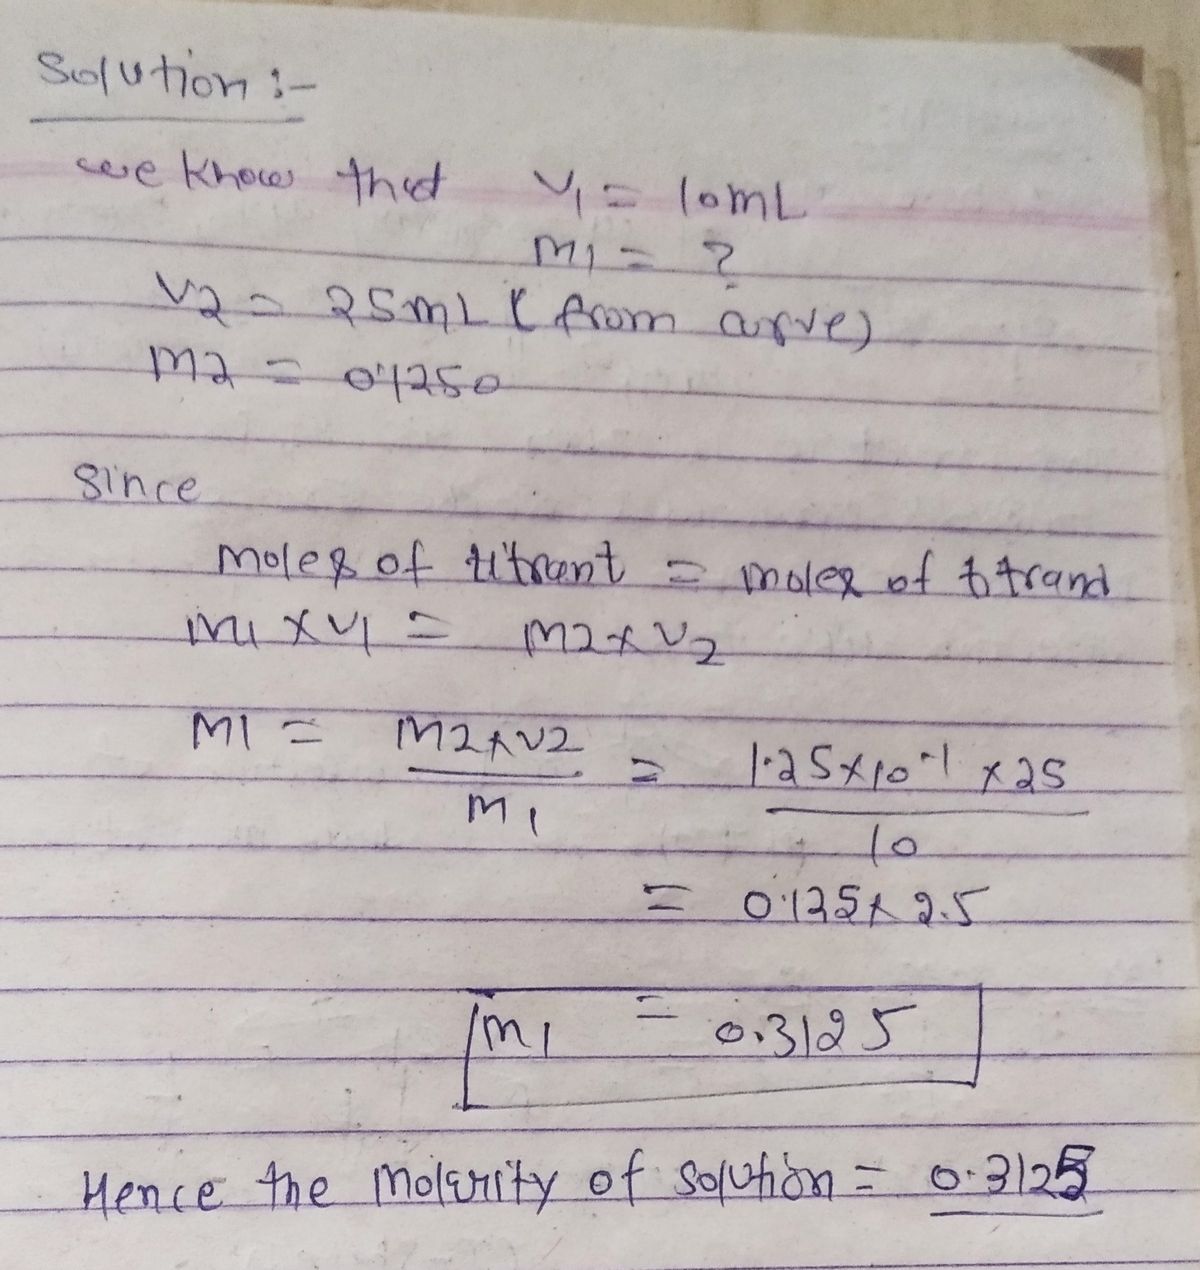 Solution :-
we know that V1 = 10mL
M1 = ?
V2 = 25mL (from curve)
M2 = 0.1250
Since
Moles of titrant = moles of titrand
M1 x V1 = M2 x V2
M1 = M2 x V2 / M1 = 1.25 x 10-1 x 25 / 10
= 0.125 x 2.5
M1 = 0.3125
Hence the Molarity of solution = 0.3125